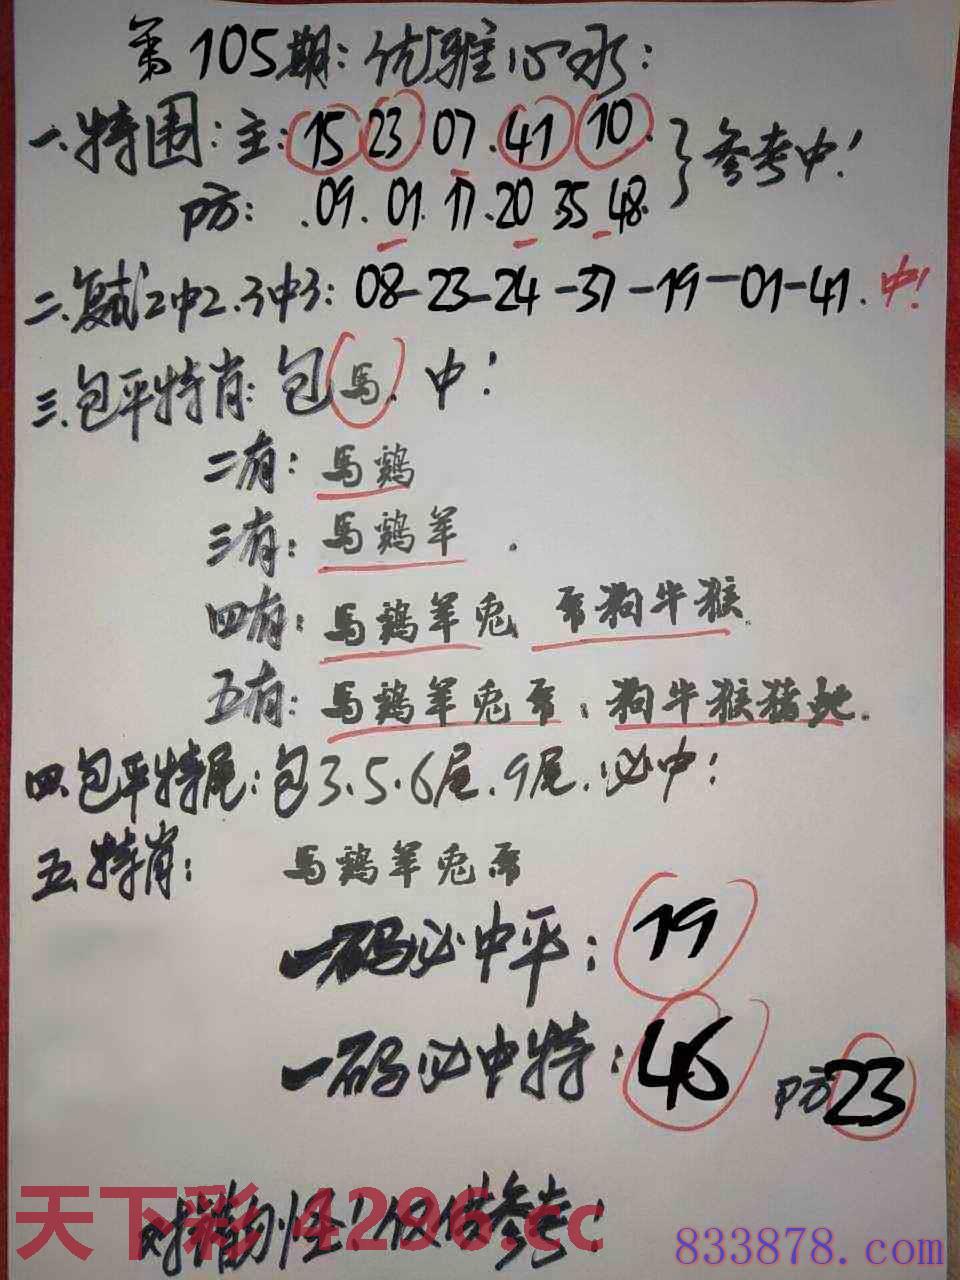 第105期:优雅心水:
一.特围:主:15 23.07.41 10.}参考中!
防:.09.01.17.20 35 48.
二.复试2中2.3中3:08-23-24-37-19-01-41.中!
三.包平特肖:包馬.中!
二有:馬鷄
三有:馬鷄羊.
四有:馬鷄羊兔 狗牛猴.
五有:馬鷄羊兔 狗牛猴猪
四.包平特尾:包3.5.6尾.9尾.必中!
五.特肖:馬鷄羊兔
一码必中平:19
一码必中特:46 防23
对错勿怪!仅供参考!
天下彩 4296.cc
833878.com